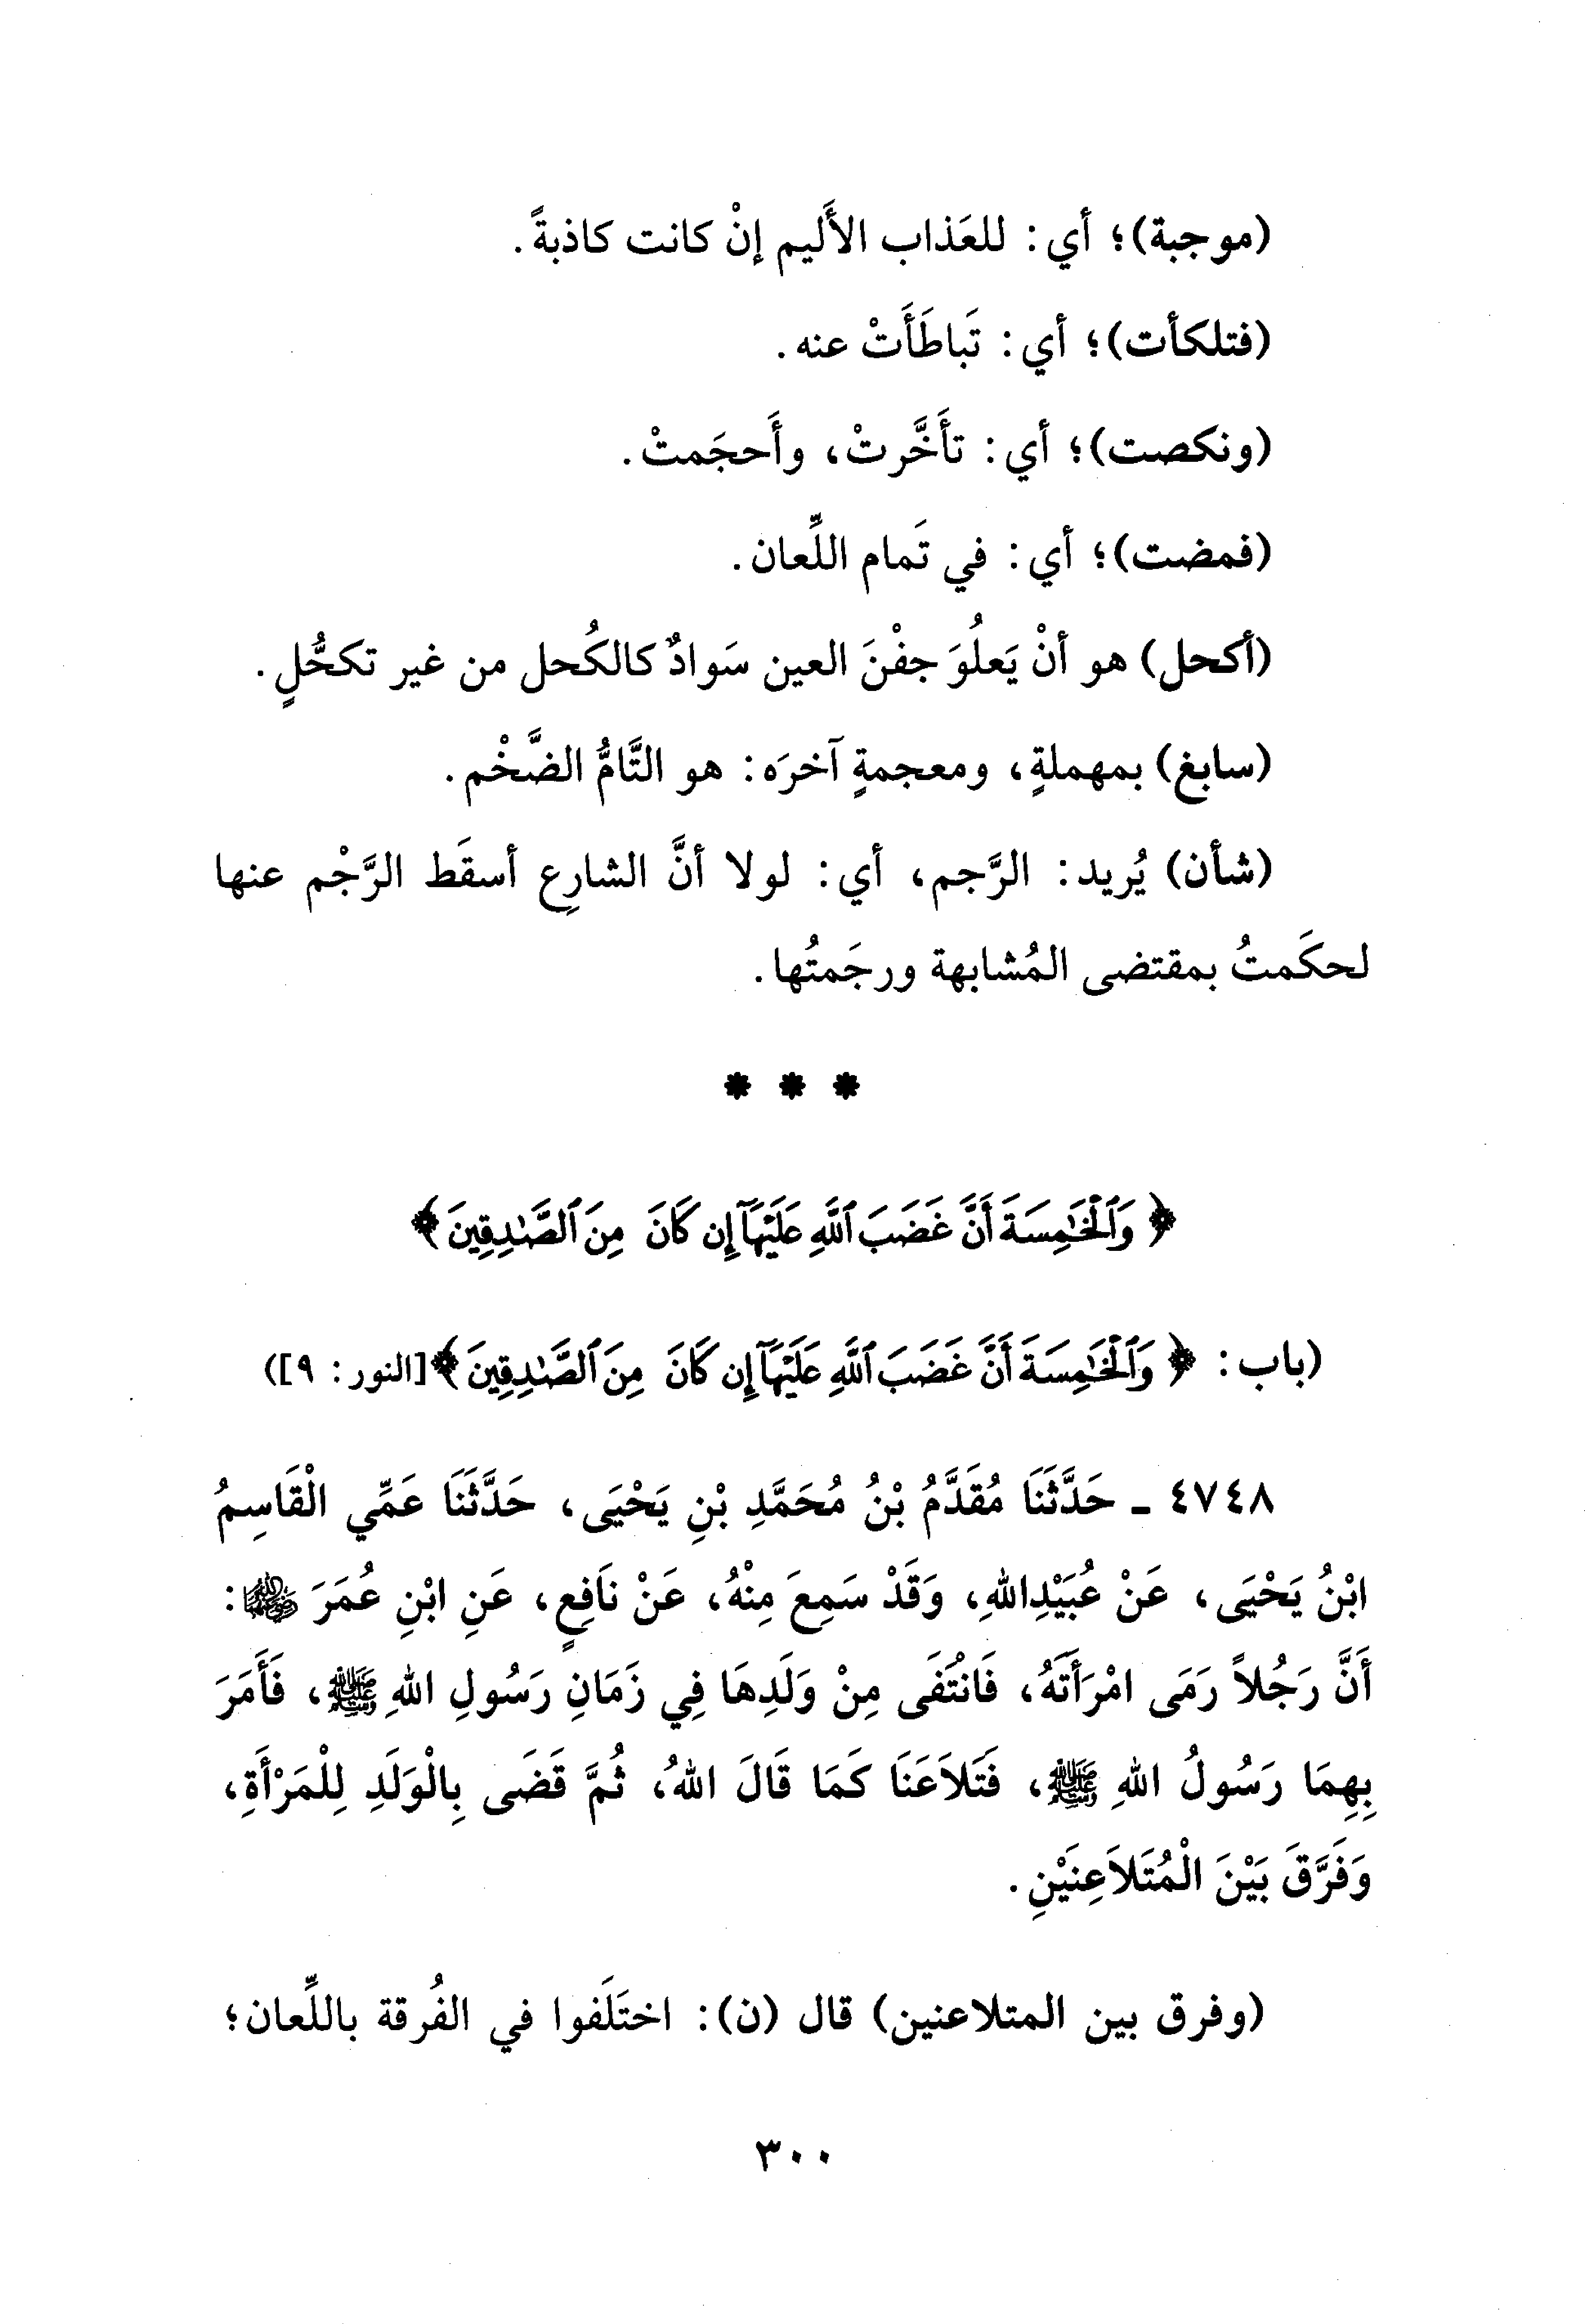 (موجبة)؛ أي: للعَذاب الأَليم إنْ كانت كاذبةً.
(فتلكأت)؛ أي: تَباطَأَتْ عنه.
(ونكصت)؛ أي: تأَخَّرتْ، وأَحجَمتْ.
(فمضت)؛ أي: في تَمام اللِّعان.
(أكحل) هو أنْ يَعلُوَ جفْنَ العين سَوادٌ كالكُحل من غير تكحُّلٍ.
(سابغ) بمهملةٍ، ومعجمةٍ آخرَه: هو التَّامُّ الضَّخْم.
(شأن) يُريد: الرَّجم، أي: لولا أنَّ الشارِع أسقَط الرَّجْم عنها
لحكَمتُ بمقتضى المُشابهة ورجَمتُها.
* * *
﴿وَٱلْخَٰمِسَةَ أَنَّ غَضَبَ ٱللَّهِ عَلَيْهَآ إِن كَانَ مِنَ ٱلصَّٰدِقِينَ﴾
(باب: ﴿وَٱلْخَٰمِسَةَ أَنَّ غَضَبَ ٱللَّهِ عَلَيْهَآ إِن كَانَ مِنَ ٱلصَّٰدِقِينَ﴾ [النور: ٩])
٤٧٤٨ ـ حَدَّثَنَا مُقَدَّمُ بْنُ مُحَمَّدِ بْنِ يَحْيَى، حَدَّثَنَا عَمِّي الْقَاسِمُ
ابْنُ يَحْيَى، عَنْ عُبَيْدِاللهِ، وَقَدْ سَمِعَ مِنْهُ، عَنْ نَافِعٍ، عَنِ ابْنِ عُمَرَ رضي الله عنهما:
أَنَّ رَجُلاً رَمَى امْرَأَتَهُ، فَانْتَفَى مِنْ وَلَدِهَا فِي زَمَانِ رَسُولِ اللهِ ﷺ، فَأَمَرَ
بِهِمَا رَسُولُ اللهِ ﷺ، فَتَلاَعَنَا كَمَا قَالَ اللهُ، ثُمَّ قَضَى بِالْوَلَدِ لِلْمَرْأَةِ،
وَفَرَّقَ بَيْنَ الْمُتَلاَعِنَيْنِ.
(وفرق بين المتلاعنين) قال (ن): اختَلَفوا في الفُرقة باللِّعان؛
٣٠٠